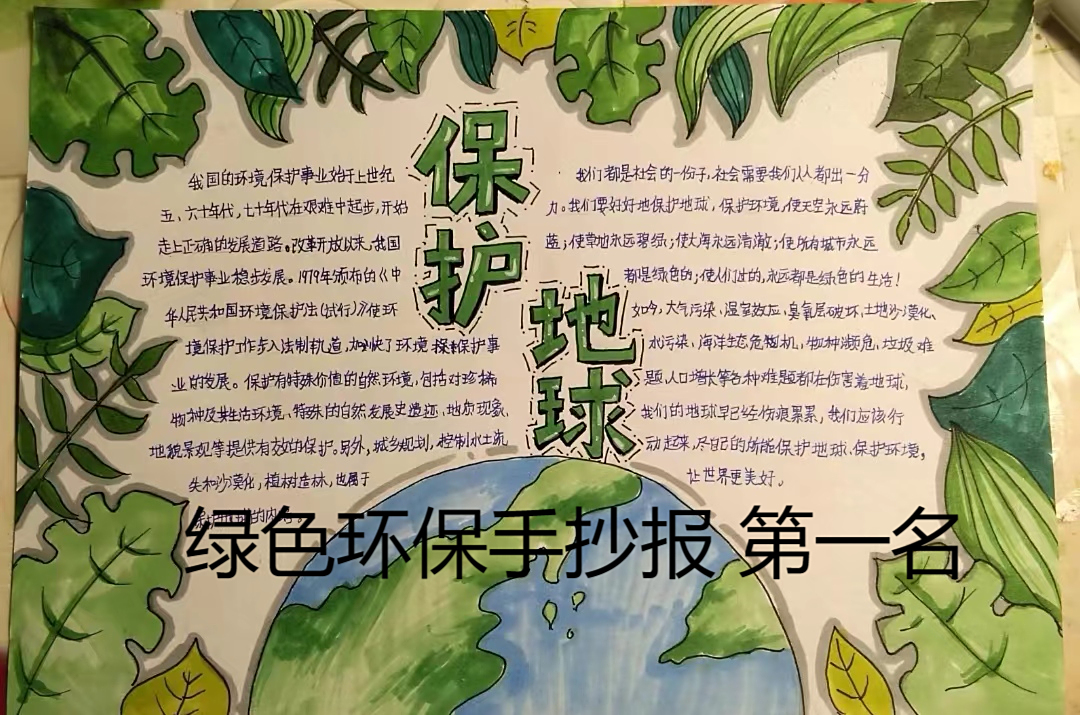 保护
地球
我国的环境保护事业始于上世纪
五、六十年代,七十年代在艰难中起步,开始
走上正确的发展道路。改革开放以来,我国
环境保护事业稳步发展。1979年颁布的《中
华人民共和国环境保护法(试行)》使环
境保护工作步入法制轨道,加快了环境保护事
业的发展。保护有特殊价值的自然环境,包括对珍稀
物种及其生活环境、特殊的自然发展史遗迹、地质现象、
地貌景观等提供有效的保护。另外,城乡规划,控制水土流
失和沙漠化,植树造林,也属于
的内
我们都是社会的一份子,社会需要我们人人都出一分
力。我们要好好地保护地球,保护环境,使天空永远蔚
蓝;使草地永远翠绿;使大海永远清澈;使所有城市永远
都是绿色的;使人们过的,永远都是绿色的生活!
如今,大气污染、温室效应、臭氧层破坏、土地沙漠化、
水污染、海洋生态危机、物种濒危、垃圾难
题、人口增长等各种难题都在伤害着地球,
我们的地球早已经伤痕累累,我们应该行
动起来,尽自己的所能保护地球、保护环境,
让世界更美好。
绿色环保手抄报 第一名